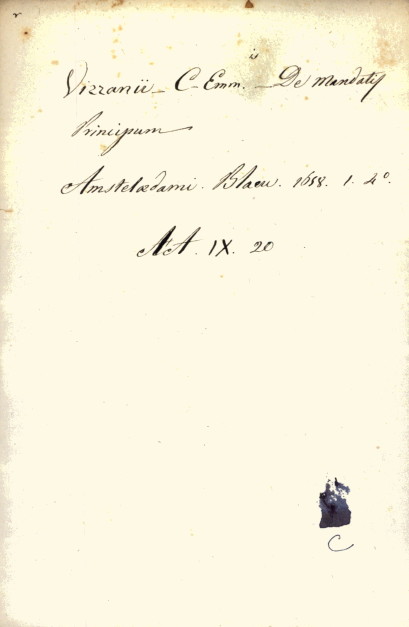 Vizzanii - C - Emm.is - De mandatis
Principum
Amstelædami. Blaeu. 1658. 1. 4º.
AA. IX. 20
C